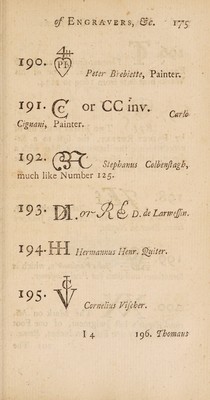 of ENGRAVERS, &c. 175
190. 4 PB
Peter Brebiette, Painter.
191. CC or CC inv. Carlo
Cignani, Painter.
192. Stephanus Colbenſtagh,
much like Number 125.
193. DL or D. de Larweſſin.
194. HH Hermannus Henr. Quiter.
195. CV
Cornelius Viſcher.
I 4 196. Thomaus